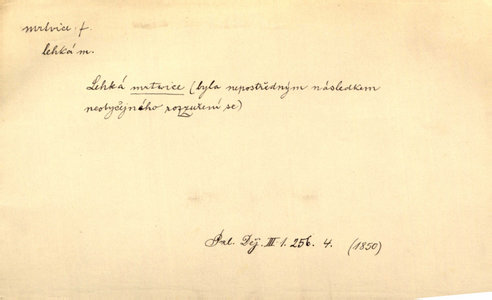 mrtvice f.
lehká m.
Lehká mrtwice (byla nepostředným následkem
neobyčejného rozzuření se)
Pal. Děj. III 1. 256. 4. (1850)